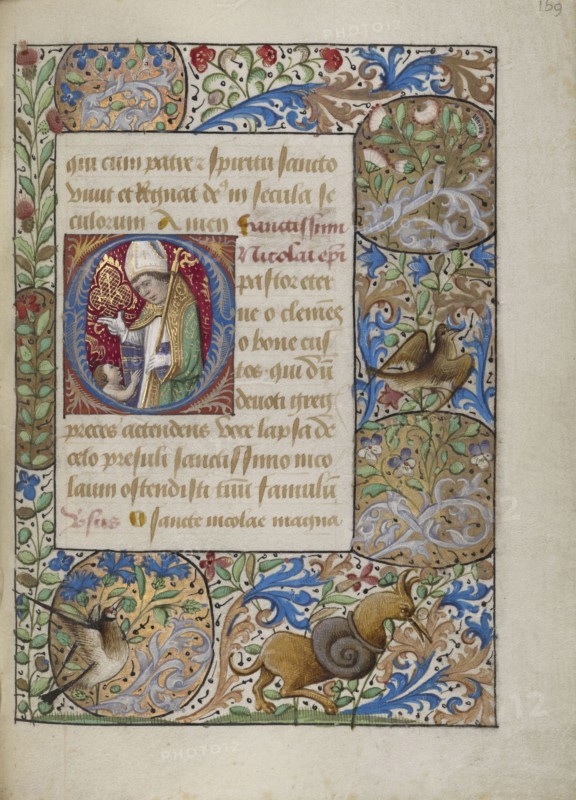 159
qui cum patre z spiritu sancto
vivit et Regnat de⁹ in secula se
culorum Amen Sanctissim
Nicolai epi
O pastor eter
ne o clemēs
o bone cus
tos qui dū
devoti greg
preces attendens voce lapsa de
celo presuli sanctissimo nico
laum ostendisti tuū famulū
Vsus O sancte nicolae magna
PHOTO12
PHOTO12